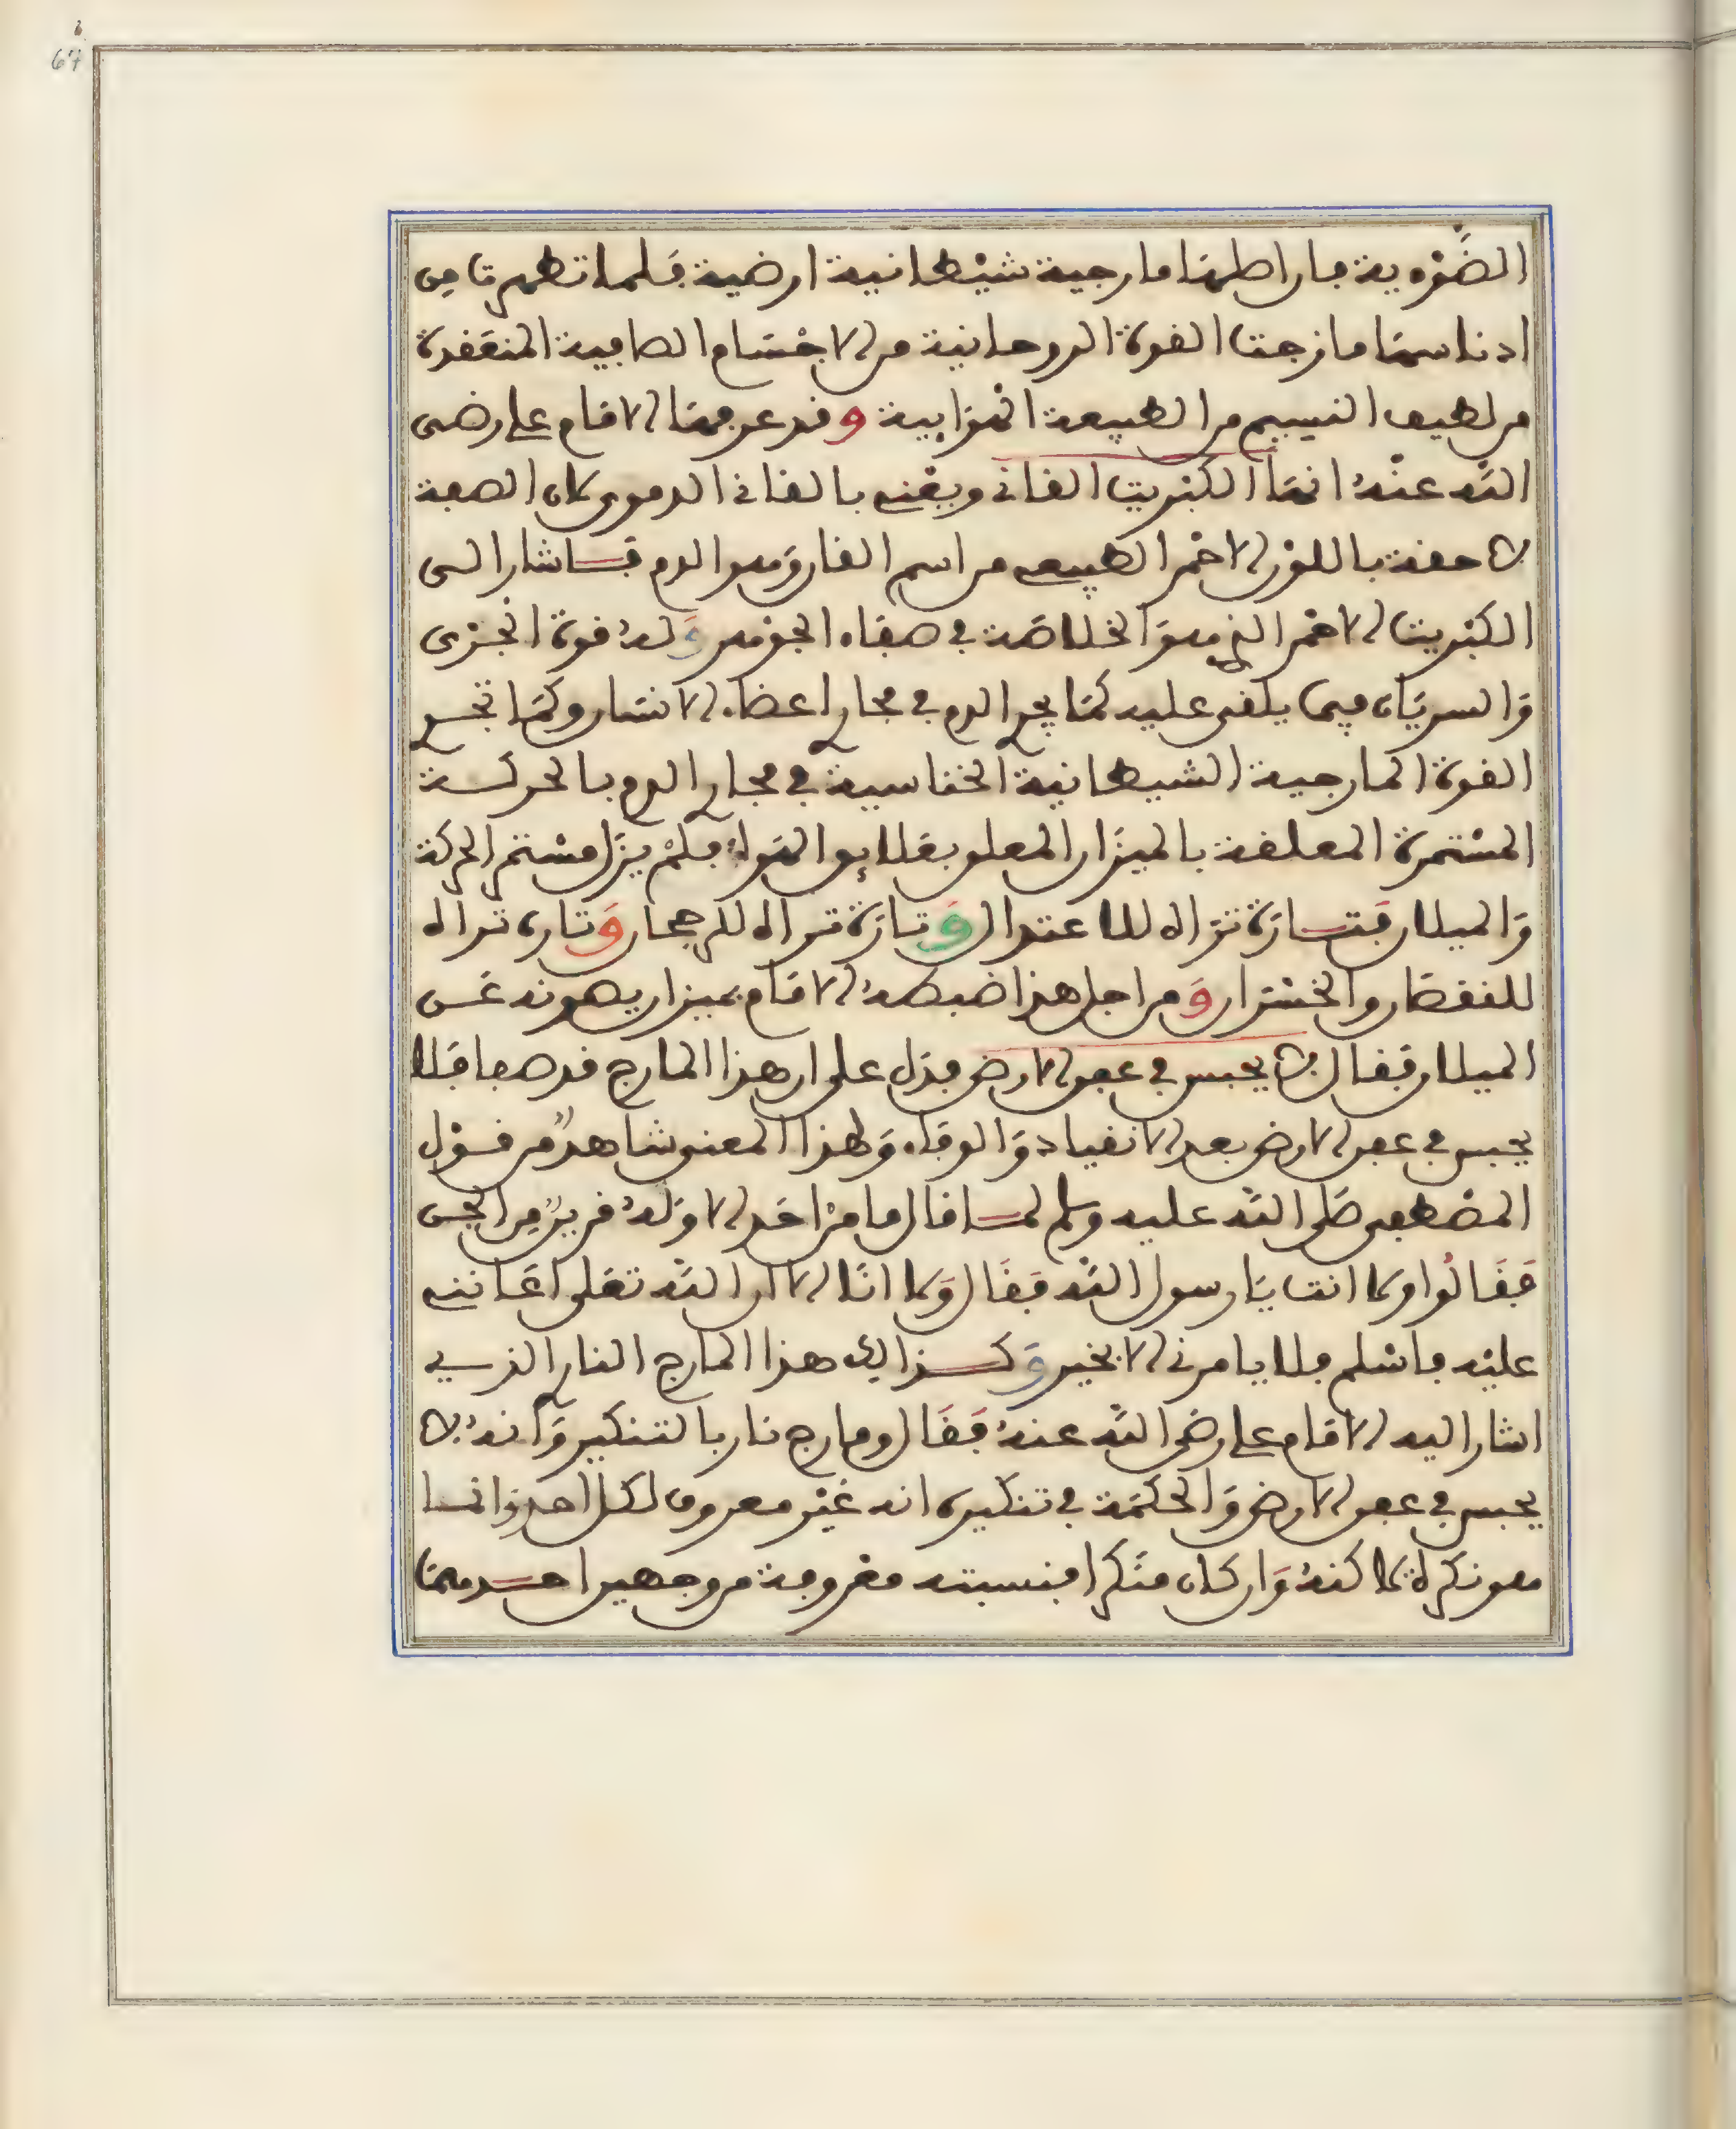 الضوية فان اصلها مارجية شيطانية ارضية فلما تطهرت من
ادناسها مازجت القوة الروحانية من الاجسام الصافية المنعقدة
من لطيف النسيم من الطبيعة الترابية وقد عرفها الامام علي رضي
الله عنه انها الكبريت القاني ويعني بالقاني الدموي لان الصفة
لاحقة باللون الاحمر الطبيعي من اسم القان وهو الدم فاشار الى
الكبريت الاحمر الذي هو الخلاصة في صفاء الجوهر وله قوة الجري
والسريان فيما يلقى عليه كما يجري الدم في مجاري اعضاء الانسان وكما تجري
القوة المارجية الشيطانية الخناسية في مجاري الدم بالحركة
المستمرة المعلقة بالميزان المعلوم بقلايل الهواء فلم يزل مستمر الحركة
والميلان فتارة تراه للاعتدال وتارة تراه للرجحان وتارة تراه
للنقصان والخسران ومن اجل هذا ضبطه الامام بميزان يصونه عن
الميلان فقال لا يحبس في عمق الارض فدل على ان هذا المارج قد صفا فلا
يحبس في عمق الارض بعد الانقياد والوفاء ولهذا المعنى شاهد من قول
المصطفى صلى الله عليه وسلم لما قال ما من احد الا وله قرين من الجن
فقالوا ولا انت يا رسول الله فقال ولا انا الا ان الله تعلى اعانني
عليه فاسلم فلا يامرني الا بخير وكذالك هذا المارج النار الذي
اشار اليه الامام علي رضي الله عنه فقال ومارج نار بالتنكير وانه لا
يحبس في عمق الارض والحكمة في تنكيره انه غير معروف لكل احد وانما
هو نكرة كنه وان كان منكرا فنسبته معروفة من وجهين احدهما
67